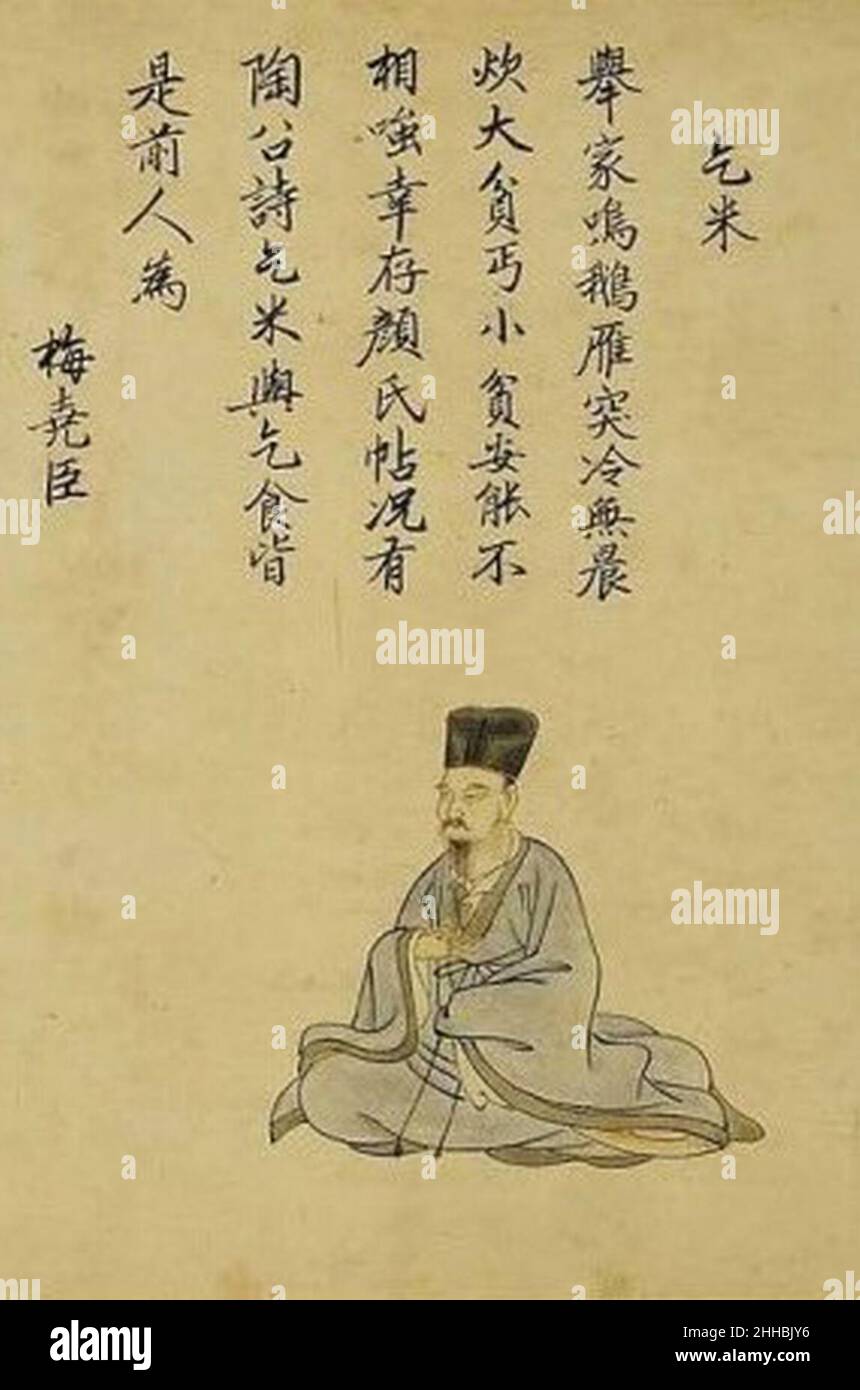 乞米
舉家鳴鵝雁突冷無晨
炊大貧丐小貧安能不
相嗤幸存顏氏帖况有
陶公詩乞米與乞食皆
是前人為
梅堯臣
alamy
Image ID: 2HHBJY6
www.alamy.com